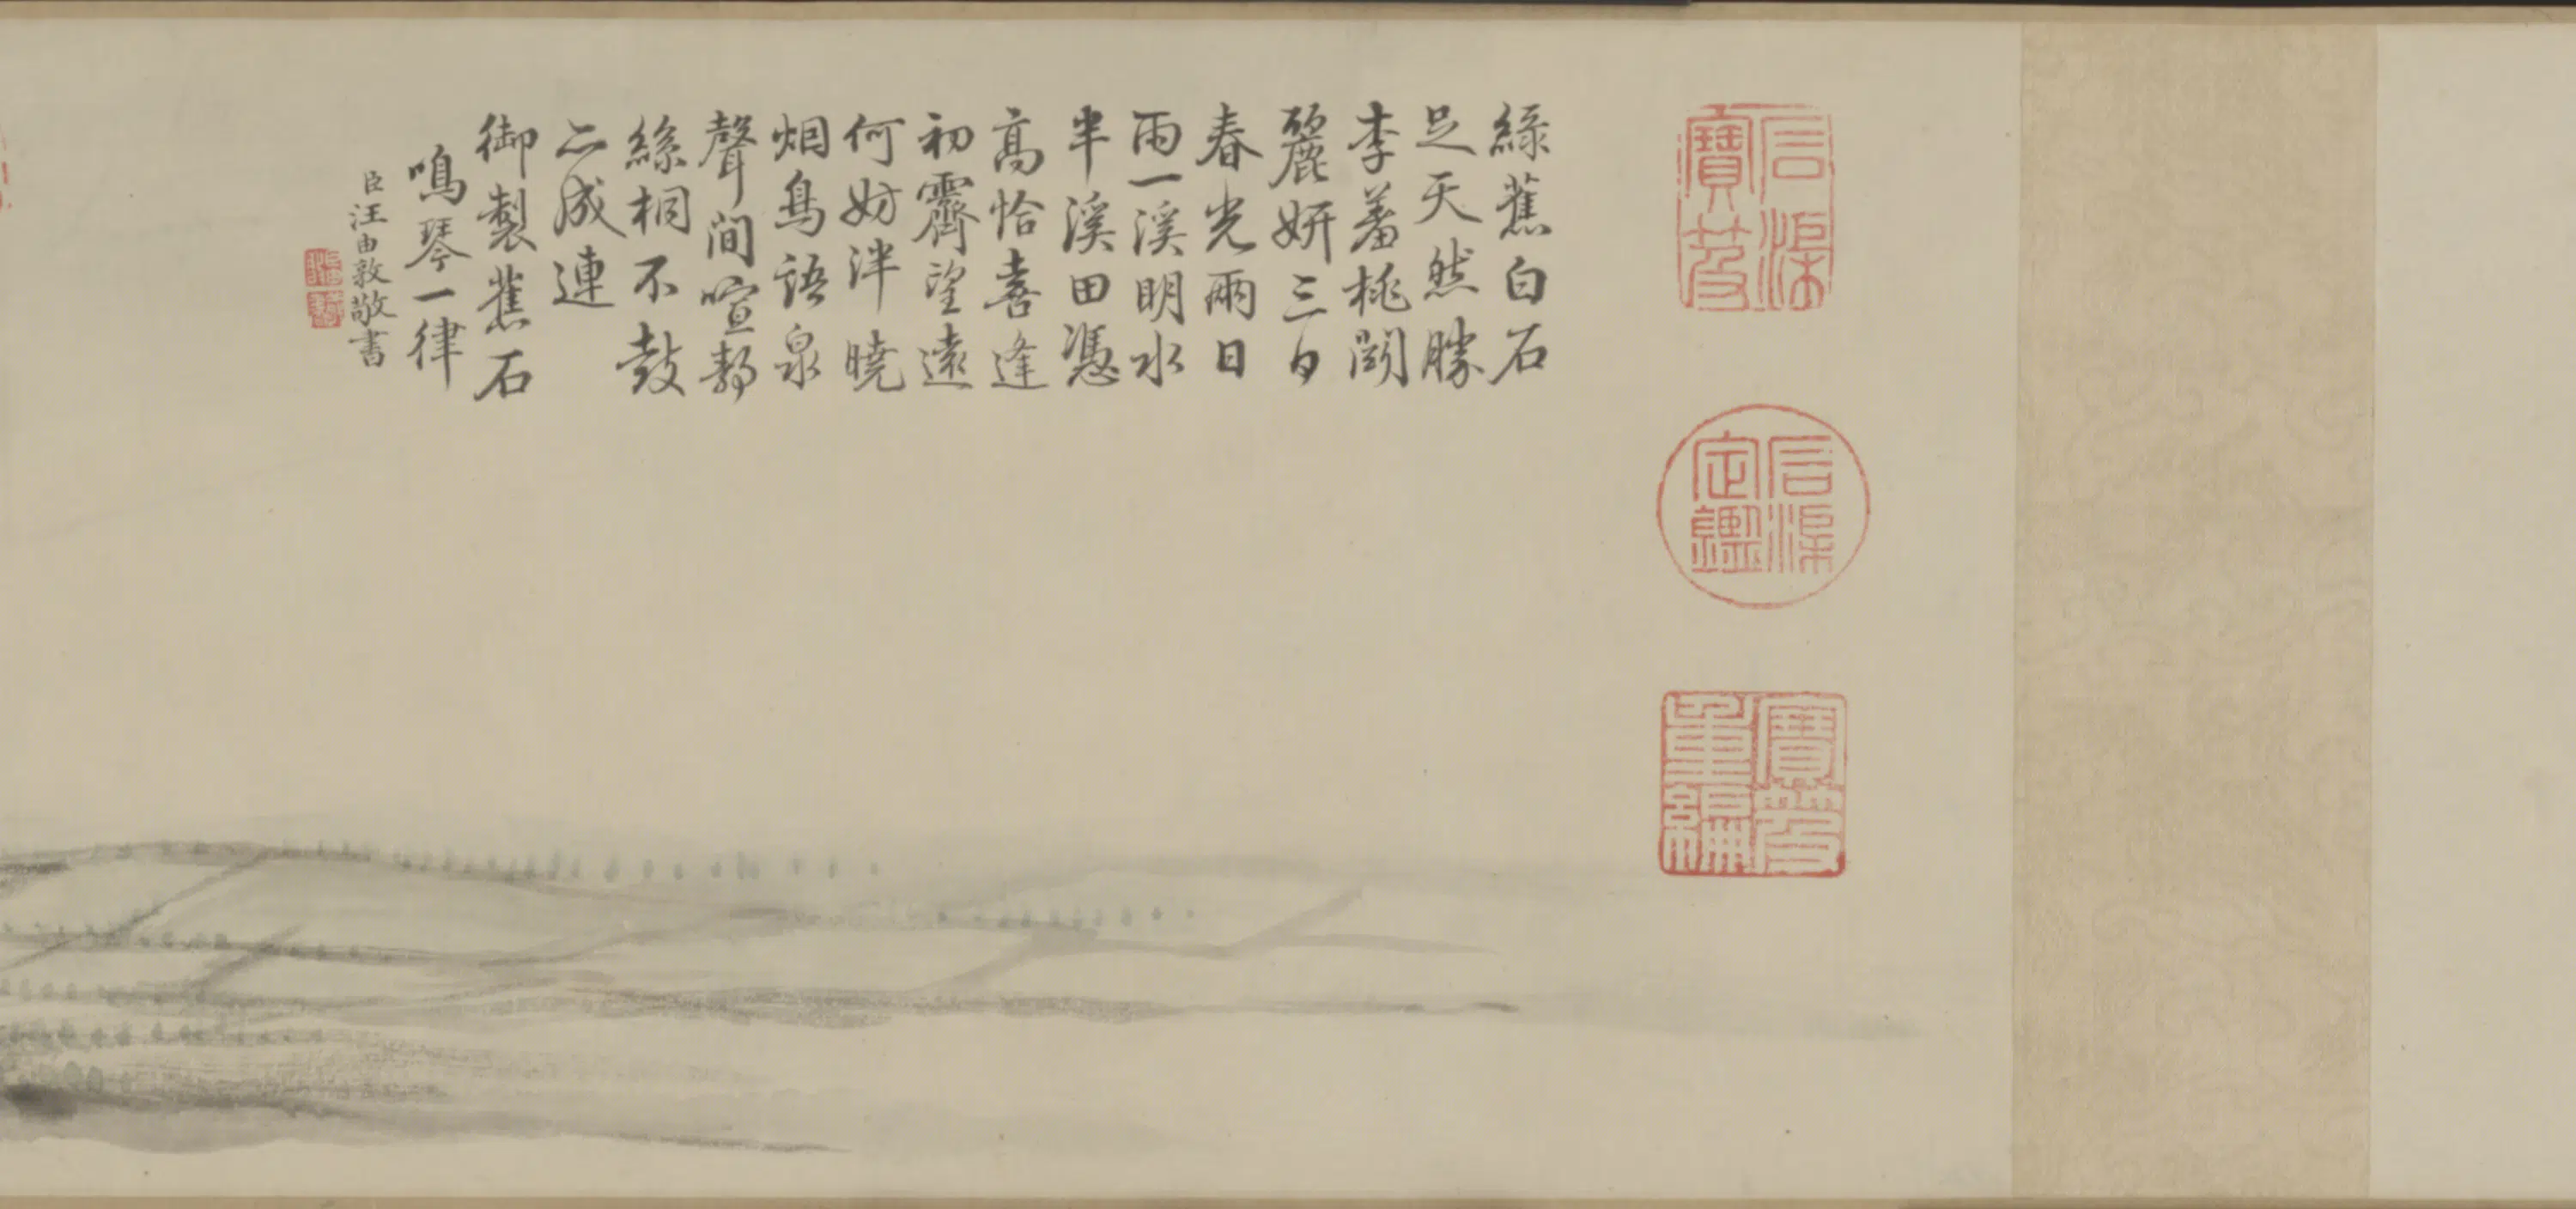 綠蕉白石
足天然勝
李羞桃鬬
麗妍三日
春光兩日
雨一溪明水
半溪田憑
高恰喜逢
初霽望遠
何妨泮曉
烟鳥語泉
聲間喧靜
絲桐不鼓
亦成連
御製蕉石
鳴琴一律
臣汪由敦敬書
石渠
寶笈
石渠
定鑑
寶笈
重編